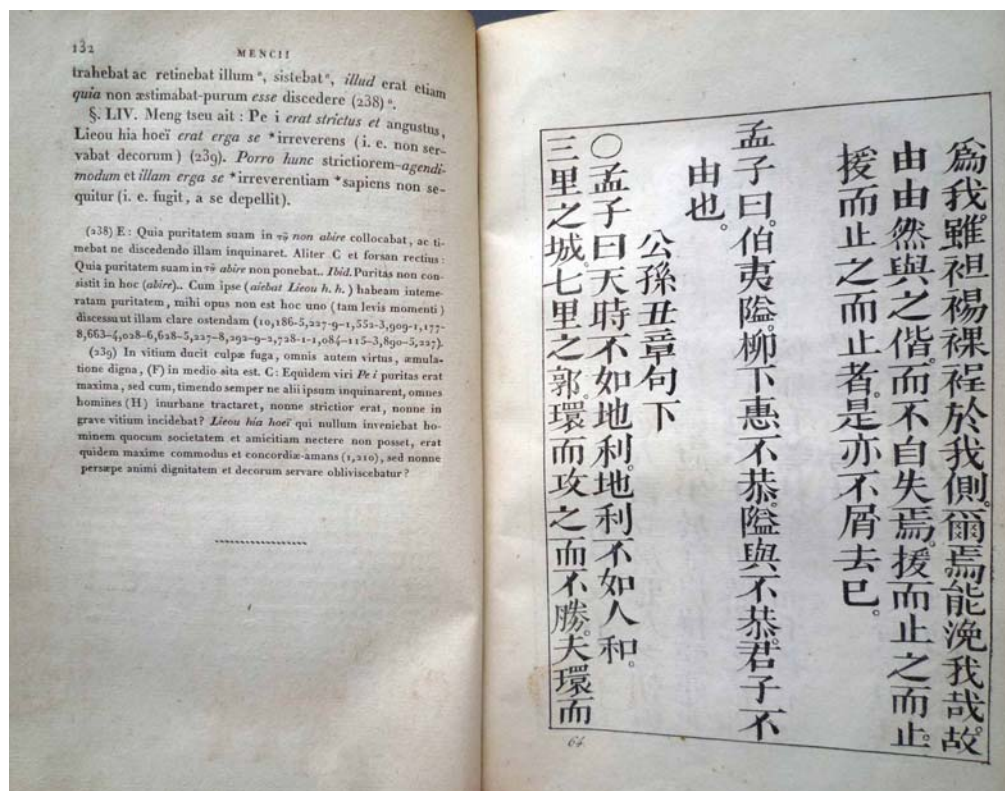 132
MENCII
trahebat ac retinebat illum ª, sistebat ª, illud erat etiam
quia non æstimabat-purum esse discedere (238) ª.
§. LIV. Meng tseu ait : Pe i erat strictus et angustus,
Lieou hia hoeï erat erga se *irreverens (i. e. non ser-
vabat decorum) (239). Porro hunc strictiorem-agendi-
modum et illam erga se *irreverentiam *sapiens non se-
quitur (i. e. fugit, a se depellit).
(238) E : Quia puritatem suam in τῷ non abire collocabat, ac ti-
mebat ne discedendo illam inquinaret. Aliter C et forsan rectius :
Quia puritatem suam in τῷ abire non ponebat.. Ibid. Puritas non con-
sistit in hoc (abire).. Cum ipse (aiebat Lieou h. h.) habeam inteme-
ratam puritatem, mihi opus non est hoc uno (tam levis momenti)
discessu ut illam clare ostendam (10,186-5,227-9-1,552-3,909-1,177-
8,663-4,028-6,628-5,227-8,292-9-2,728-1-1,084-115-3,890-5,227).
(239) In vitium ducit culpæ fuga, omnis autem virtus, æmula-
tione digna, (F) in medio sita est. C : Equidem viri Pe i puritas erat
maxima, sed cum, timendo semper ne alii ipsum inquinarent, omnes
homines (H) inurbane tractaret, nonne strictior erat, nonne in
grave vitium incidebat? Lieou hia hoeï qui nullum inveniebat ho-
minem quocum societatem et amicitiam nectere non posset, erat
quidem maxime commodus et concordiæ-amans (1,210), sed nonne
persæpe animi dignitatem et decorum servare obliviscebatur ?
爲我雖袒裼裸裎於我側。爾焉能浼我哉。故
由由然與之偕。而不自失焉。援而止之而止。
援而止之而止者。是亦不屑去巳。
孟子曰。伯夷隘。柳下惠不恭。隘與不恭。君子不
由也。
公孫丑章句下
○孟子曰天時不如地利。地利不如人和。
三里之城。七里之郭。環而攻之而不勝。夫環而
64